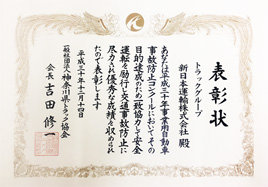 表彰状
トラックグループ
新日本運輸株式会社 殿
あなたは平成三十年事業用自動車
事故防止コンクールにおいてその
目的達成のため一致協力して安全
運転を励行し交通事故防止に
尽力され優秀な成績を収められ
たので表彰します
平成三十年十二月十四日
一般社団法人神奈川県トラック協会
会長 吉田修一